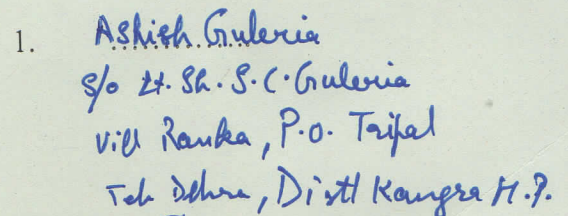 1. Ashish Guleria
S/o Lt. Sh. S.C. Guleria
Vill Ranka, P.O. Taipal
Teh Dehra, Distt Kangra H.P.